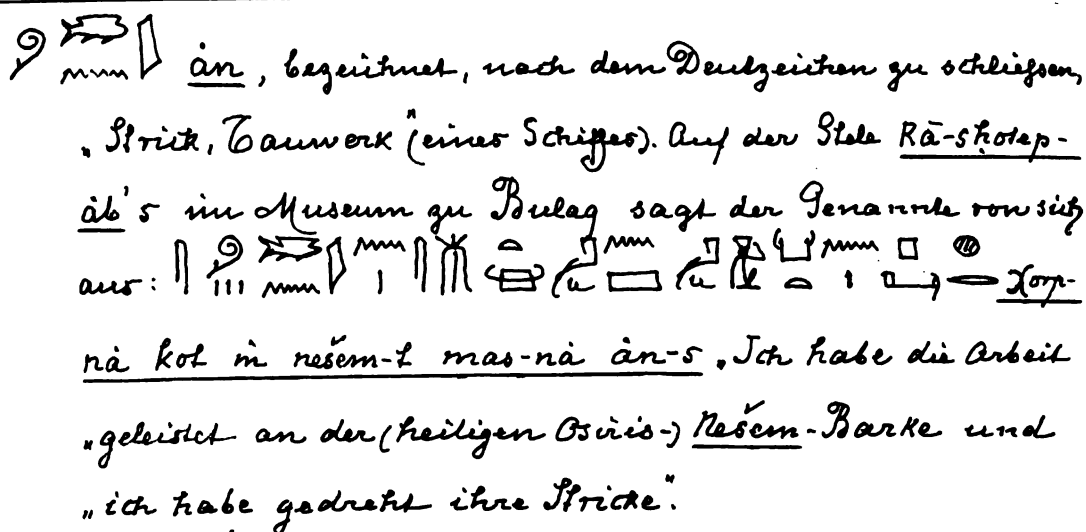 ȧn, bezeichnet, nach dem Deutzeichen zu schließen,
„Strick, Tauwerk" (eines Schiffes). Auf der Stele Rā-sḥotep-
ȧb's im Museum zu Bulaq sagt der Genannte von sich
aus: Xorp-
nȧ kot m nešem-t mas-nȧ ȧn-s „Ich habe die Arbeit
„geleistet an der (heiligen Osiris-) Nešem-Barke und
„ich habe gedreht ihre Stricke".